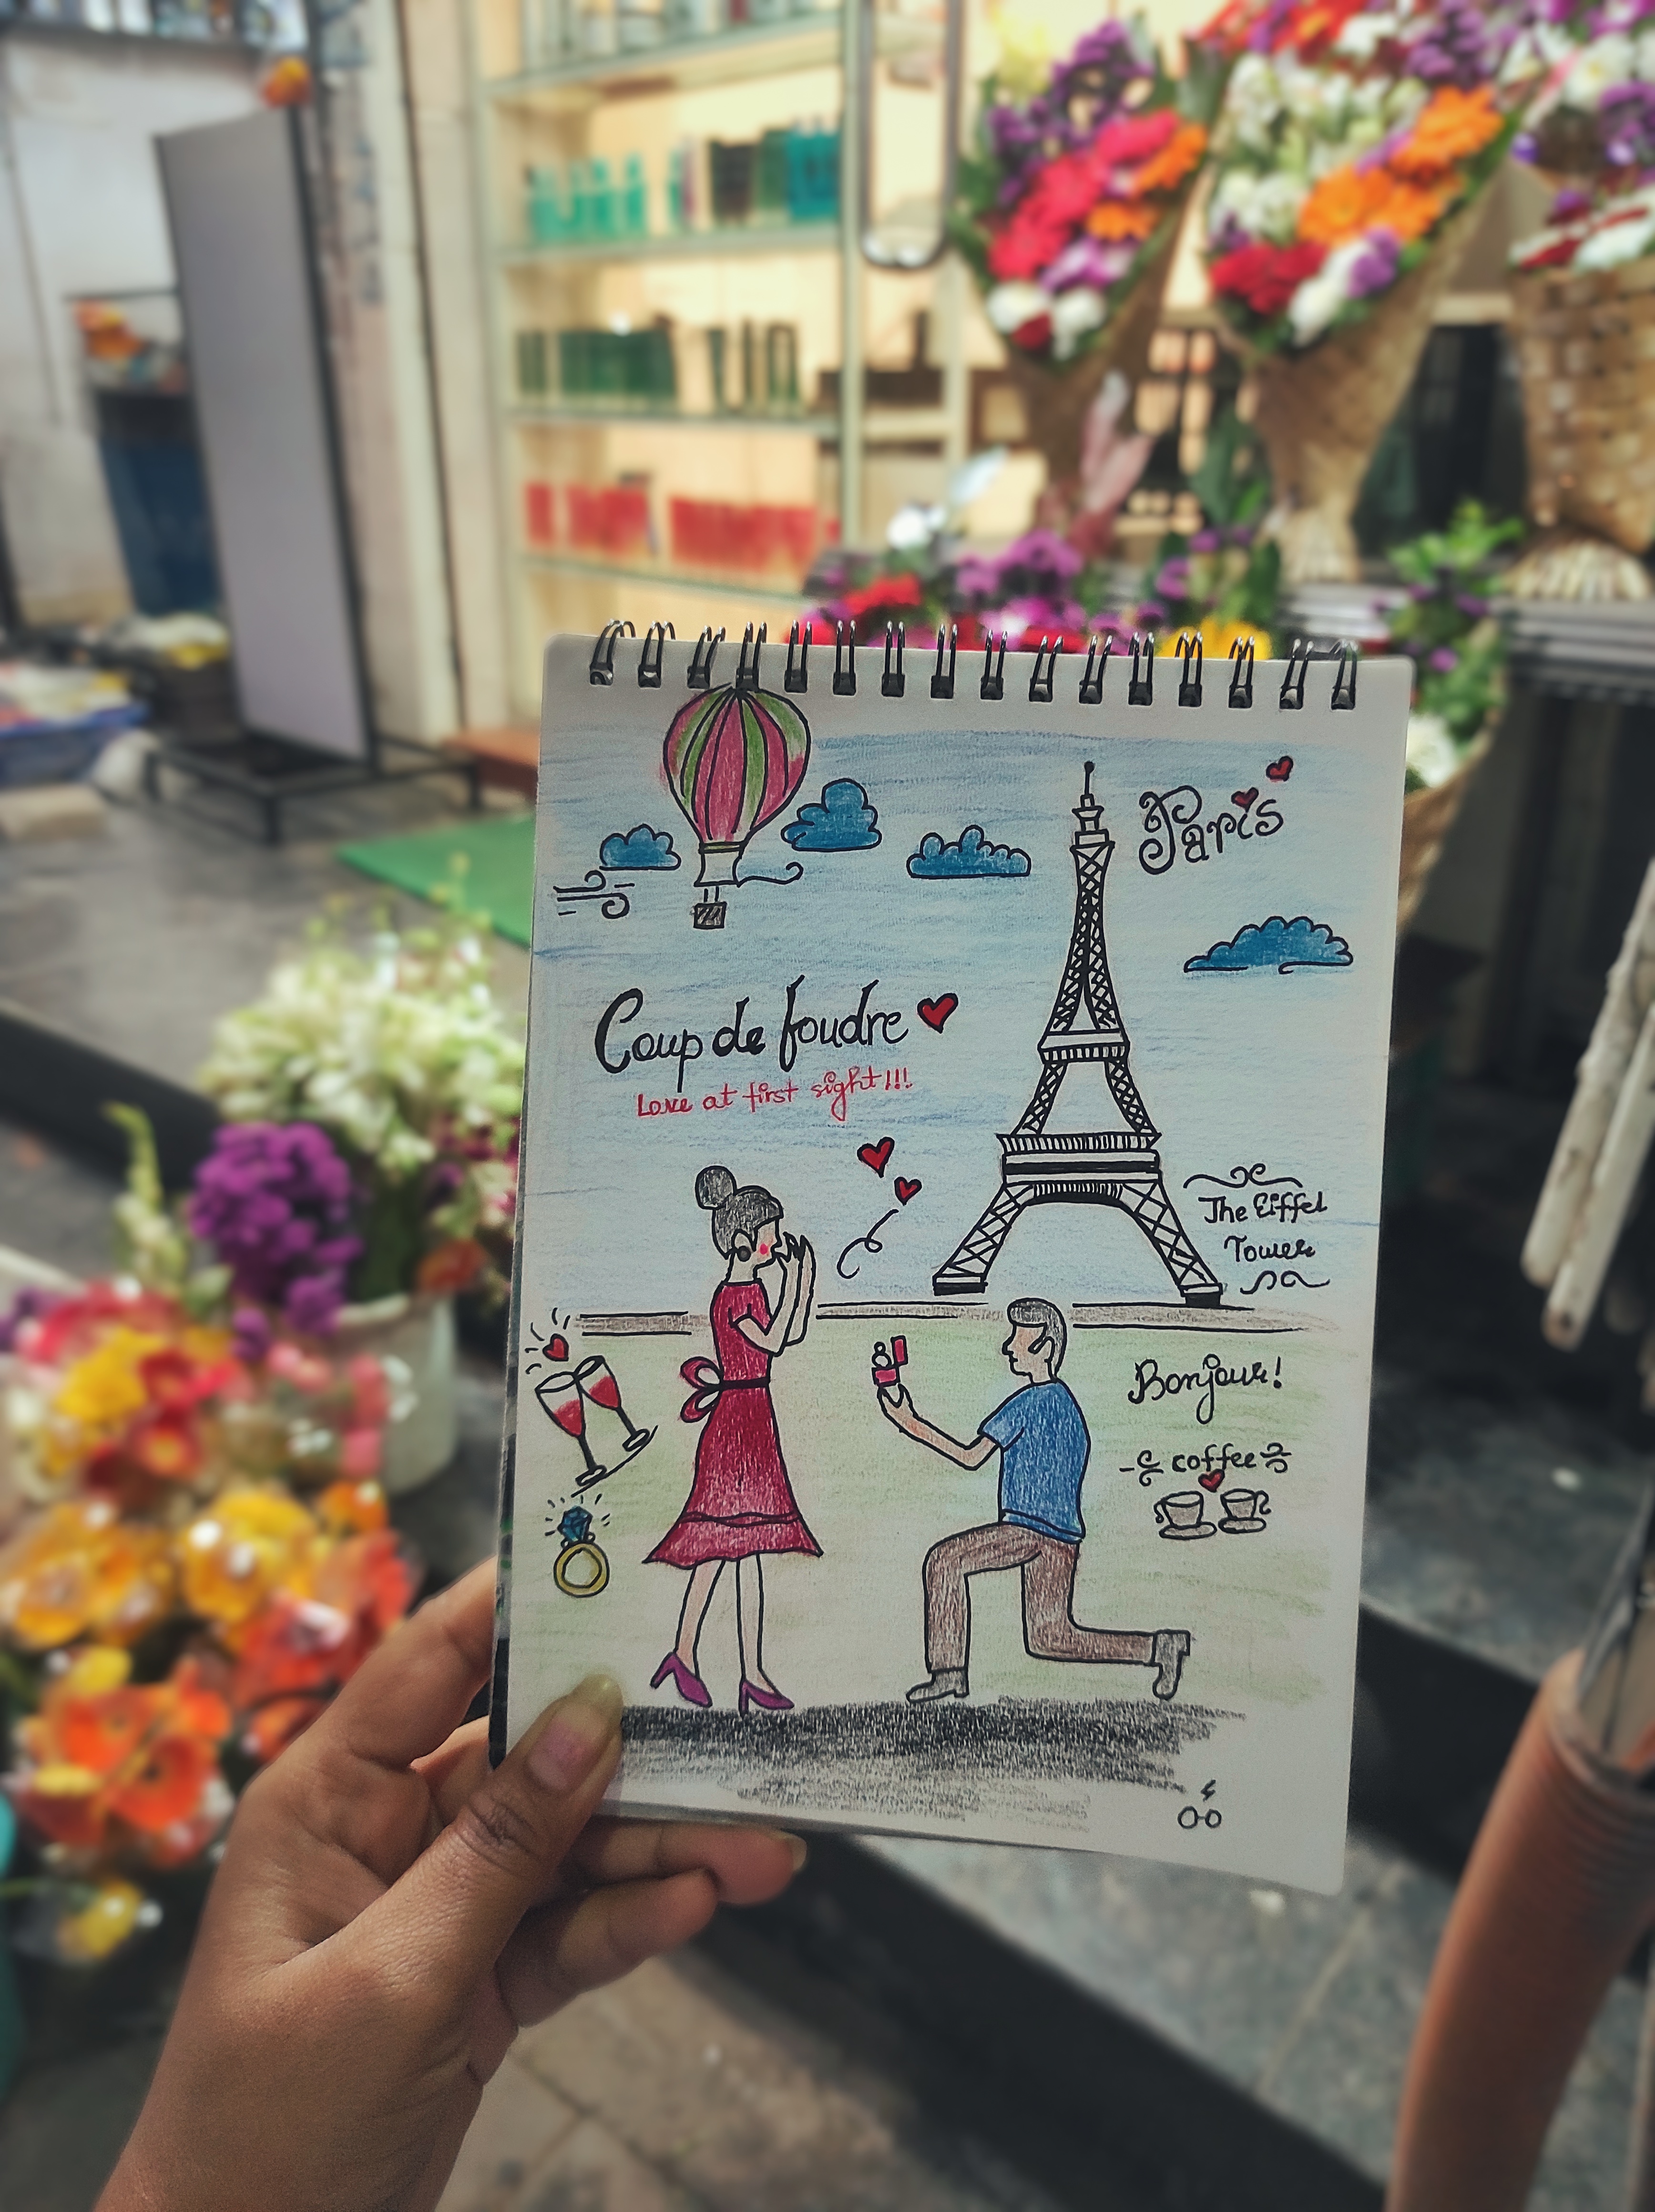 Paris
Coup de foudre
Love at first sight!!!
The Eiffel
Tower
Bonjour!
coffee